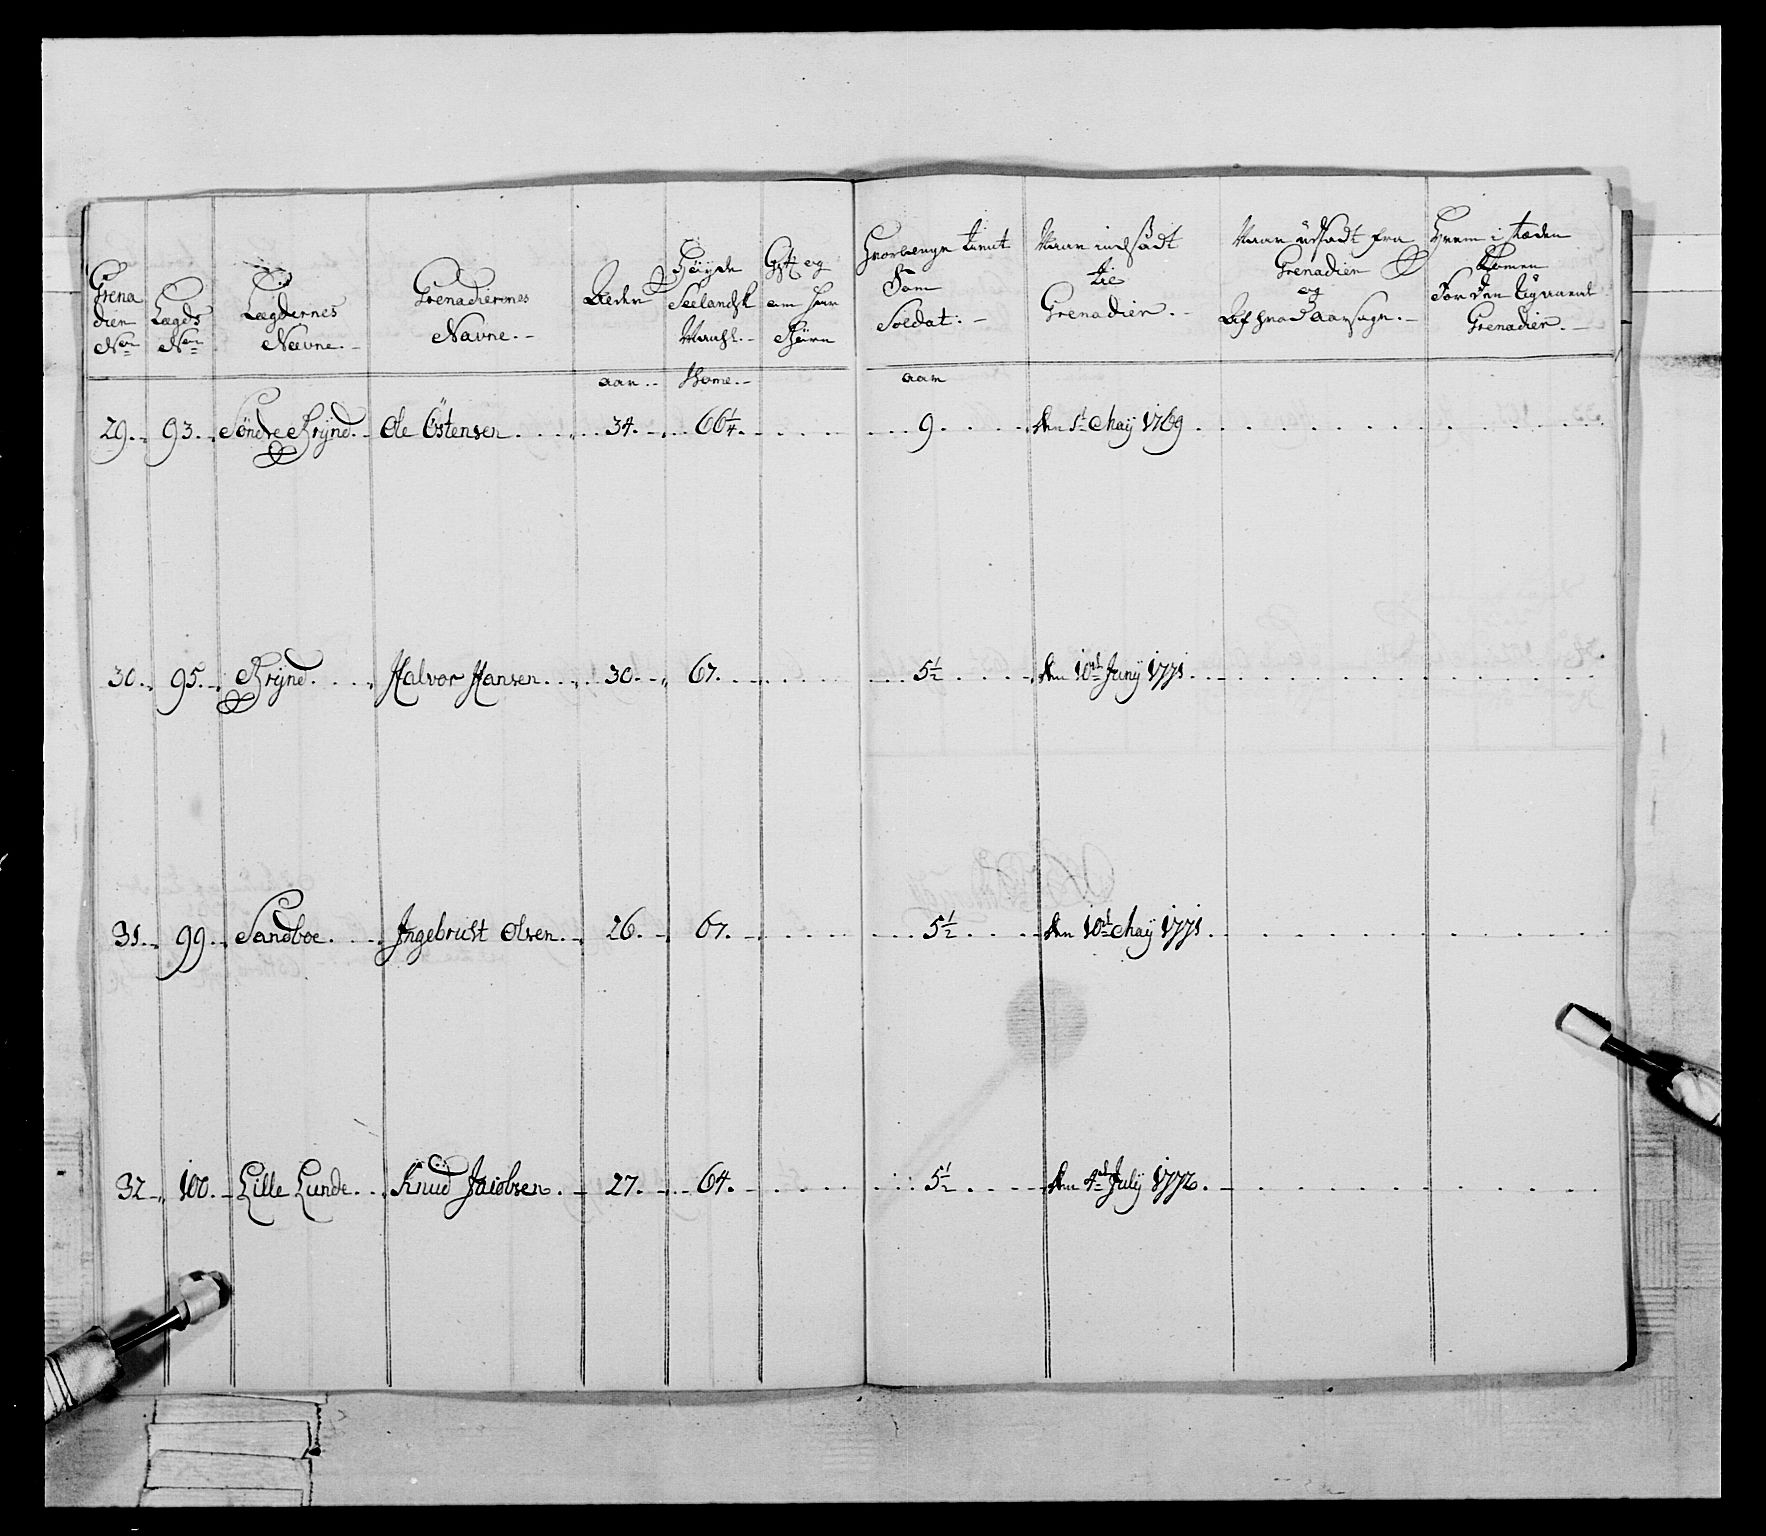 Grena
dier
No
Lægds
No
Lægdernes
Navne.
Grenadierernes
Navne.
Alder
Høyde
Seelandsk
Maahl.
Gift og
om har
Børn
Hvorlænge tient
Som
Soldat.
Naar indsadt
til
Grenadier.
Naar udsadt fra
Grenadier
og
Af hvad aarsage.
Hvem i stæden
Kommen
For den
Grenadier.
aar. Tome. aar
29. 93. Söndre Brÿnd. Ole Östensen 34. 66¼. 9. den 1t Maÿ 1769
30. 95. Brÿnd. Halvor Hansen. 30. 67. 5½ den 10de Junÿ 1771.
31. 99. Sandboe. Ingebricht Olsen. 26. 67. 5½ den 10de Maÿ 1771.
32. 100. Lille Lunde. Knud Jacobsen. 27. 64. 5½ den 4de Julÿ 1772.